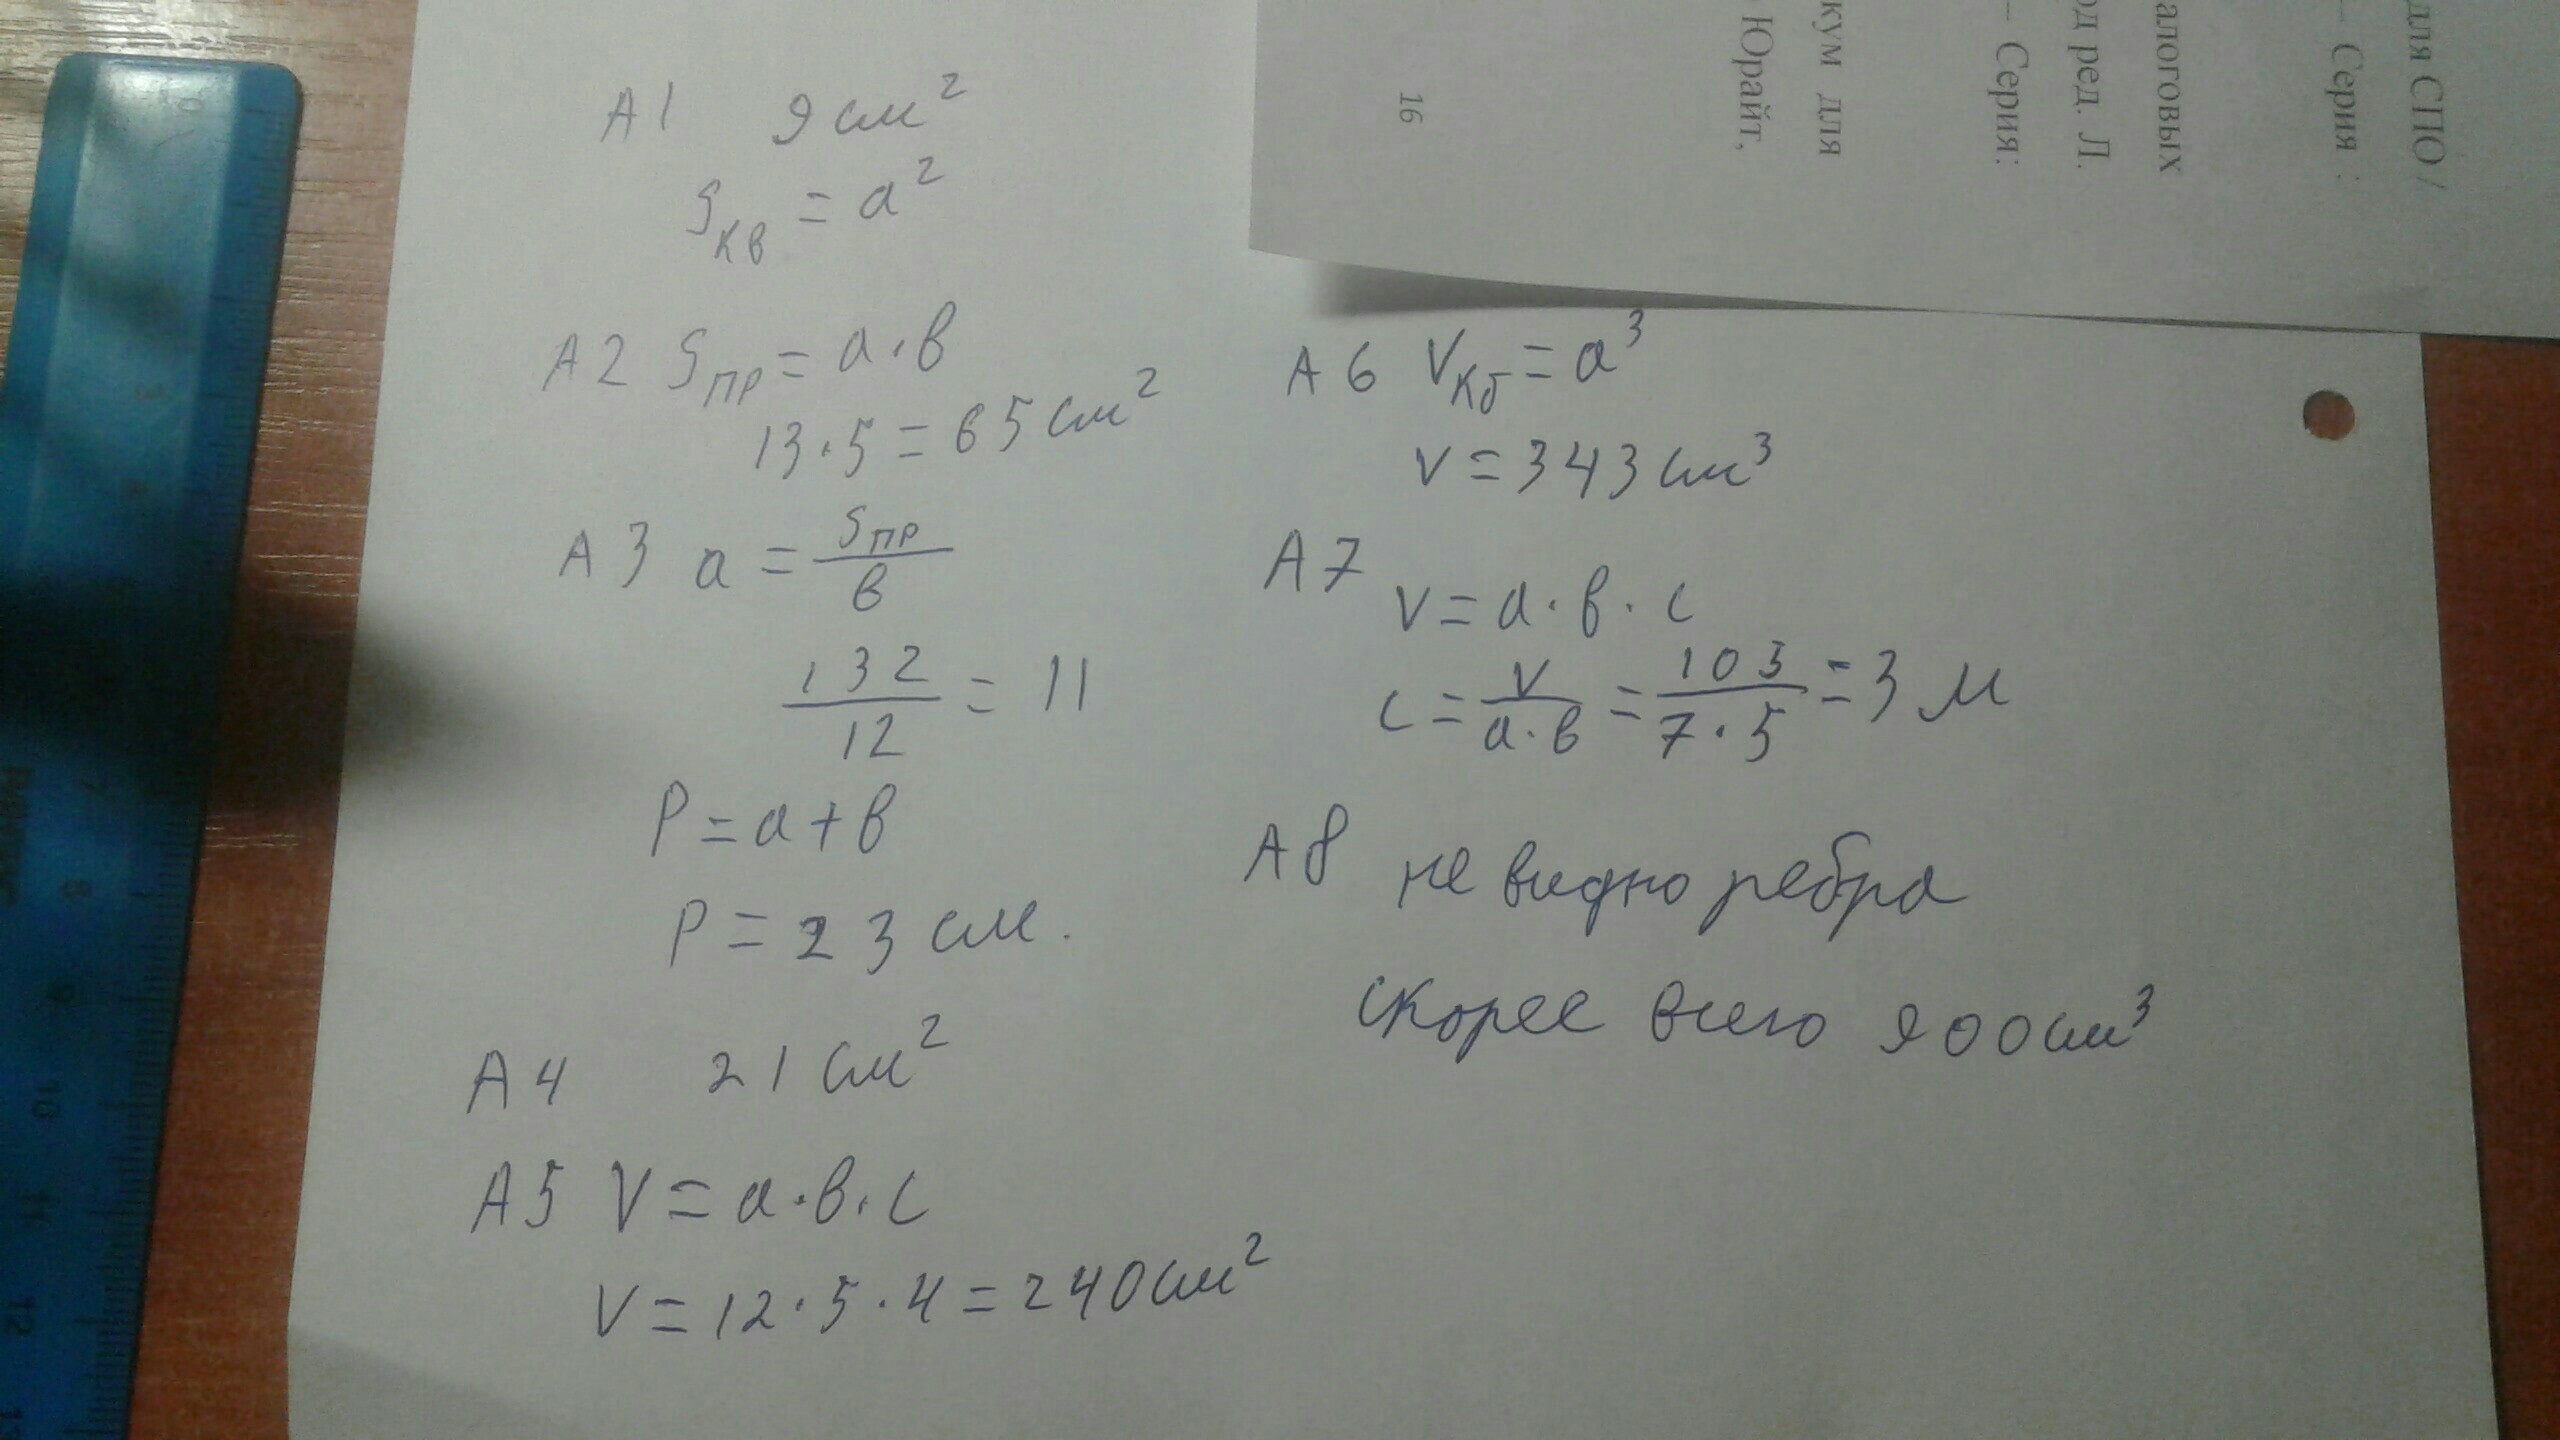 А1 9 см²
Sкв = а²
А2 Sпр = а·в
13·5 = 65 см²
А3 а = Sпр/в
132/12 = 11
Р = а + в
Р = 23 см.
А4 21 см²
А5 V = а·в·с
V = 12·5·4 = 240 см²
А6 Vкб = а³
V = 343 см³
А7 V = а·в·с
с = V/а·в = 103/7·5 = 3 м
А8 не видно ребра
скорее всего 900 см³
для СПО /
— Серия :
алоговых
од ред. Л.
— Серия:
кум для
Юрайт,
16